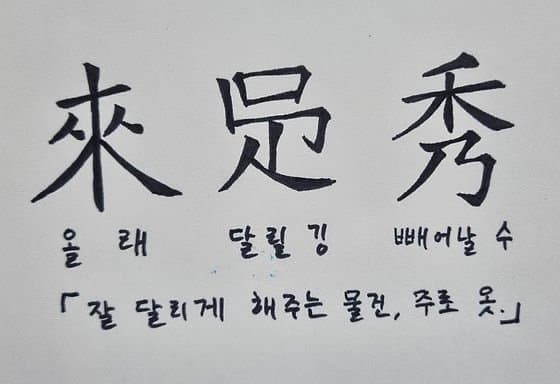 來 秀
올 래 달릴 깅 빼어날 수
「잘 달리게 해주는 물건, 주로 옷.」